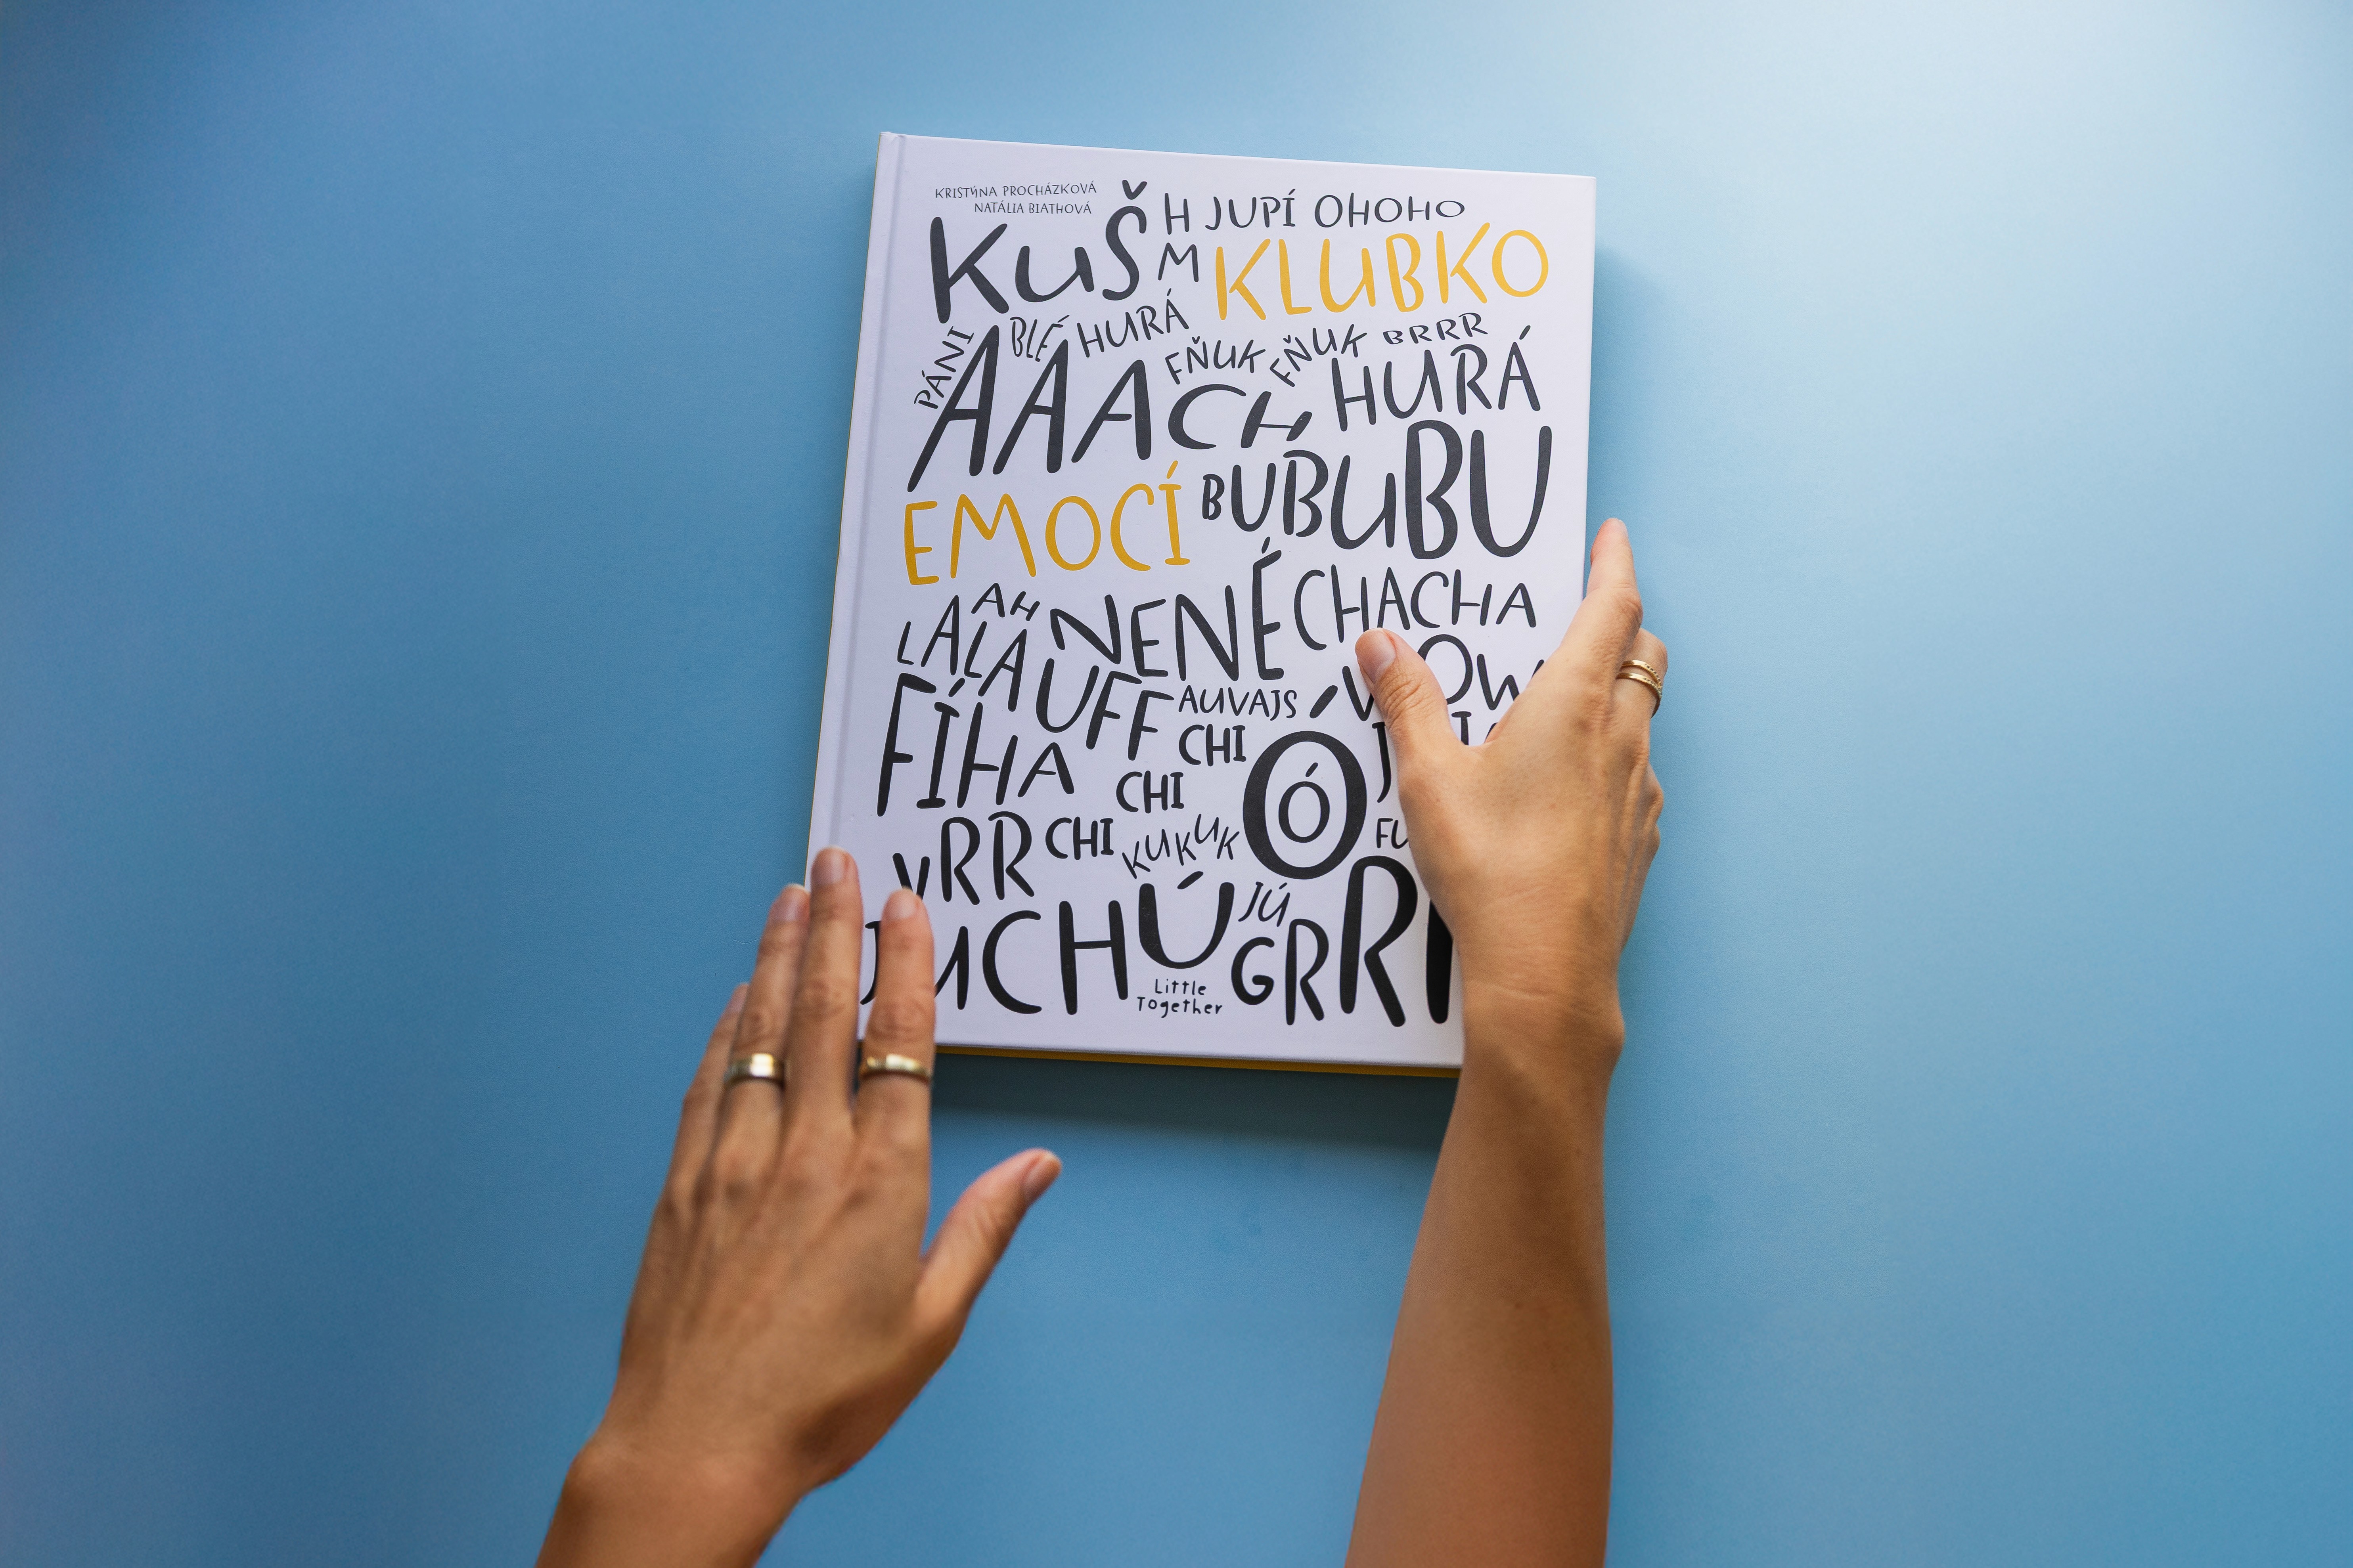 KRISTÝNA PROCHÁZKOVÁ
NATÁLIA BIATHOVÁ
KUŠ
HM
JUPÍ OHOHO
KLUBKO
PÁNI
BLÉ
HURÁ
FŇUK FŇUK
BRRR
AAACH
HURÁ
EMOCÍ
BUBUBU
LALALA
AH
NENÉ
CHACHA
UFF
AUVAJS
FÍHA
CHI
CHI
CHI
Ó
Ó
VRR
KUKUK
JUCHÚ
JÚ
Little
Together